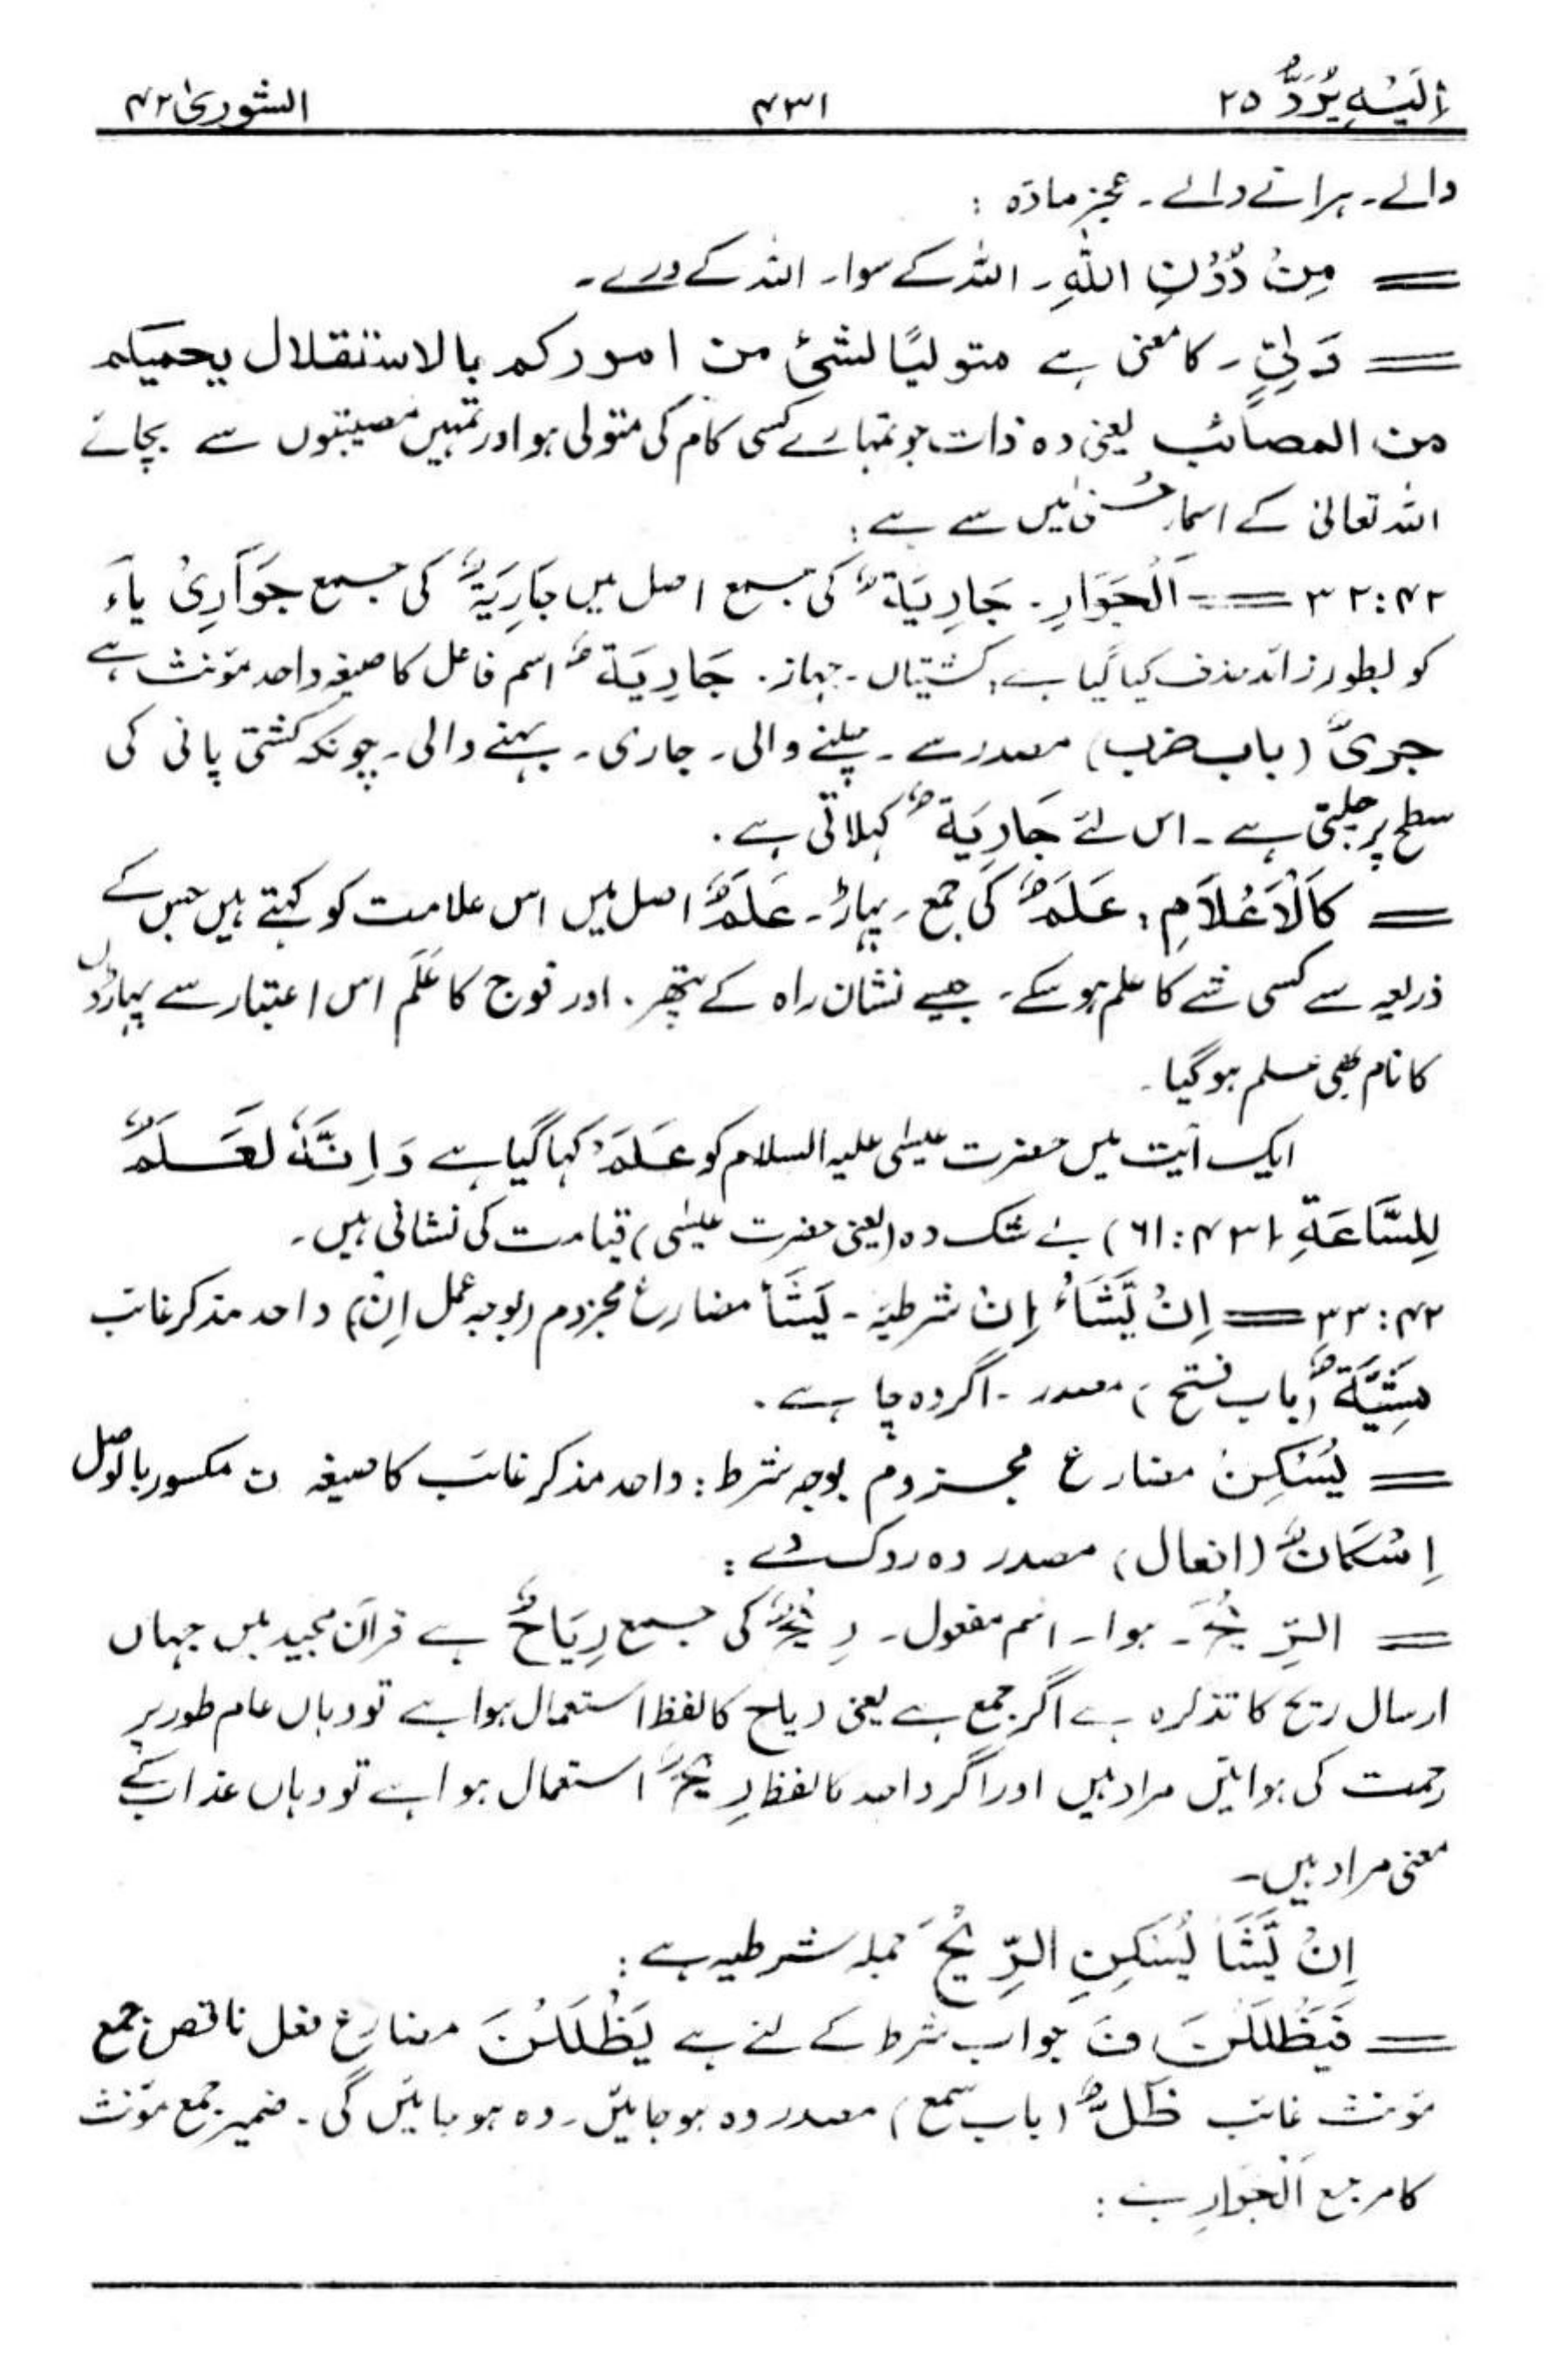 اِلَیْہِ یُرَدُّ ۲۵ ۴۳۱ الشوریٰ ۴۲
والے۔ ہرانے والے۔ عجز مادّہ :
= مِنْ دُوْنِ اللّٰہِ۔ اللہ کے سوا۔ اللہ کے ورے۔
= وَلِیٍّ۔ کا معنی ہے متولیًا لشیٔ من امورکم بالاستقلال یحمیکم
من المصائب یعنی وہ ذات جو تمہارے کسی کام کی متولی ہو اور تمہیں مصیبتوں سے بچائے
اللہ تعالیٰ کے اسماء حُسنیٰ میں سے ہے :
۴۲:۳۲ == اَلْجَوَارِ۔ جَارِیَۃٌ کی جمع اصل میں جَارِیَۃٌ کی جمع جَوَارِیْ یاءَ
کو بطور زائد حذف کیا گیا ہے، کشتیاں۔ جہاز۔ جَارِیَۃٌ اسم فاعل کا صیغہ واحد مؤنث ہے
جَرْیٌ (باب ضرب) مصدر سے۔ چلنے والی۔ جاری۔ بہنے والی۔ چونکہ کشتی پانی کی
سطح پر چلتی ہے۔ اس لئے جَارِیَۃٌ کہلاتی ہے۔
= کَالْاَعْلَامِ: عَلَمٌ کی جمع۔ پہاڑ۔ عَلَمٌ اصل میں اس علامت کو کہتے ہیں جس کے
ذریعہ سے کسی شے کا علم ہو سکے۔ جیسے نشان راہ کے پتھر۔ اور فوج کا عَلَم اس اعتبار سے پہاڑوں
کا نام بھی علم ہو گیا۔
ایک آیت میں حضرت عیسٰی علیہ السلام کو عَلَمٌ کہا گیا ہے وَاِنَّہٗ لَعَلَمٌ
لِلسَّاعَۃِ (۴۳:۶۱) بے شک وہ (یعنی حضرت عیسٰی) قیامت کی نشانی ہیں۔
۴۲:۳۳ = اِنْ یَّشَاْ اِنْ شرطیہ۔ یَشَاْ مضارع مجزوم (بوجہ عمل اِنْ) واحد مذکر غائب
مَشِیَّۃٌ (باب فتح) مصدر۔ اگر وہ چاہے۔
= یُسْکِنْ مضارع مجزوم بوجہ شرط: واحد مذکر غائب کا صیغہ ن مکسور بالوصل
اِسْکَانٌ (افعال) مصدر وہ روک دے :
= الرِّیْحَ۔ ہوا۔ اسم مفعول۔ رِیْحٌ کی جمع رِیَاحٌ ہے قرآن مجید میں جہاں
ارسال ریح کا تذکرہ ہے اگر جمع ہے یعنی ریاح کا لفظ استعمال ہوا ہے تو وہاں عام طور پر
رحمت کی ہوائیں مراد ہیں اور اگر واحد کا لفظ رِیْحٌ استعمال ہوا ہے تو وہاں عذاب کے
معنی مراد ہیں۔
اِنْ یَّشَاْ یُسْکِنِ الرِّیْحَ جملہ شرطیہ ہے :
= فَیَظْلَلْنَ فَ جواب شرط کے لئے ہے یَظْلَلْنَ مضارع فعل ناقص جمع
مؤنث غائب ظَلٌّ (باب سمع) مصدر وہ ہو جائیں۔ وہ ہو جائیں گی۔ ضمیر جمع مؤنث
کا مرجع اَلْجَوَارِ ہے :